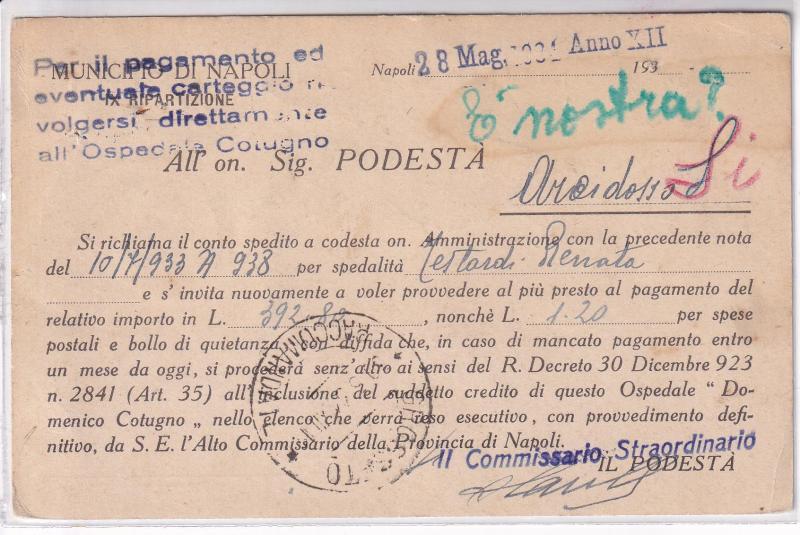 Per il pagamento ed
eventuale carteggio ri
volgersi direttamente
all'Ospedale Cotugno
MUNICIPIO DI NAPOLI
IX RIPARTIZIONE
Napoli 28 Mag. 1934 Anno XII 193
E' nostra?
Si
All' on. Sig. PODESTÀ
Arcidosso
Si richiama il conto spedito a codesta on. Amministrazione con la precedente nota
del 10/7/933 N 938 per spedalità Testardi Renata
e s' invita nuovamente a voler provvedere al più presto al pagamento del
relativo importo in L. 392.80, nonchè L. 1.20 per spese
postali e bollo di quietanza, con diffida che, in caso di mancato pagamento entro
un mese da oggi, si procederà senz'altro ai sensi del R. Decreto 30 Dicembre 923
n. 2841 (Art. 35) all'inclusione del suddetto credito di questo Ospedale " Do-
menico Cotugno „ nello elenco che verrà reso esecutivo, con provvedimento defi-
nitivo, da S. E. l'Alto Commissario della Provincia di Napoli.
Il Commissario Straordinario
IL PODESTÀ
RACCOMANDATE